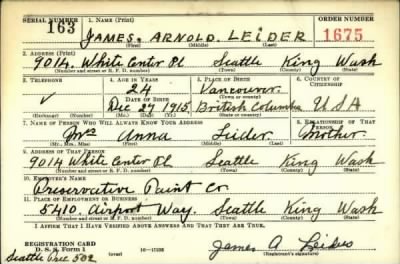 SERIAL NUMBER 1. NAME (Print) ORDER NUMBER
163 JAMES. ARNOLD. LEIDER 1675
(First) (Middle) (Last)
2. ADDRESS (Print)
9014. White Center Pl Seattle King Wash
(Number and street or R. F. D. number) (Town) (County) (State)
3. TELEPHONE 4. AGE IN YEARS 5. PLACE OF BIRTH 6. COUNTRY OF CITIZENSHIP
24 Vancouver.
DATE OF BIRTH (Town or county)
✓ Dec 27 1915. British Columbia USA
(Exchange) (Number) (Mo.) (Day) (Yr.) (State or country)
7. NAME OF PERSON WHO WILL ALWAYS KNOW YOUR ADDRESS 8. RELATIONSHIP OF THAT PERSON
Mrs Anna Leider. Mother.
(Mr., Mrs., Miss) (First) (Middle) (Last)
9. ADDRESS OF THAT PERSON
9014 White Center Pl Seattle King Wash
(Number and street or R. F. D. number) (Town) (County) (State)
10. EMPLOYER'S NAME
Preservative Paint Co.
11. PLACE OF EMPLOYMENT OR BUSINESS
5410. Airport Way. Seattle King Wash
(Number and street or R. F. D. number) (Town) (County) (State)
I AFFIRM THAT I HAVE VERIFIED ABOVE ANSWERS AND THAT THEY ARE TRUE.
REGISTRATION CARD
D. S. S. Form 1 (over) James A Leider
Seattle Prec 502 (Registrant's signature)